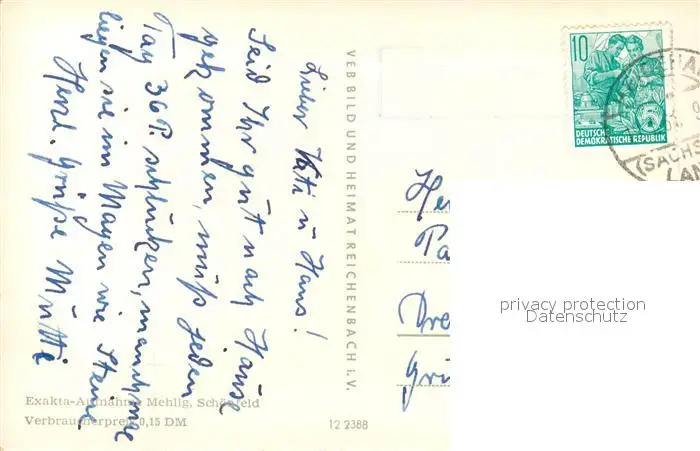 Liebe Kati u Hans!
Seid Ihr gut nach Hause
gekommen, muß jeden
Tag 36 P. schlucken, manchmal
liegen sie im Magen wie Steine
Herzl. Grüße Mutti
VEB BILD UND HEIMAT REICHENBACH i. V.
10
DEUTSCHE
DEMOKRATISCHE REPUBLIK
(SACHS
LAN
He
Pa
Dre
Grü
privacy protection
Datenschutz
Exakta-Aufnahme Mehlig, Schönfeld
Verbraucherpreis 0,15 DM
12 2388